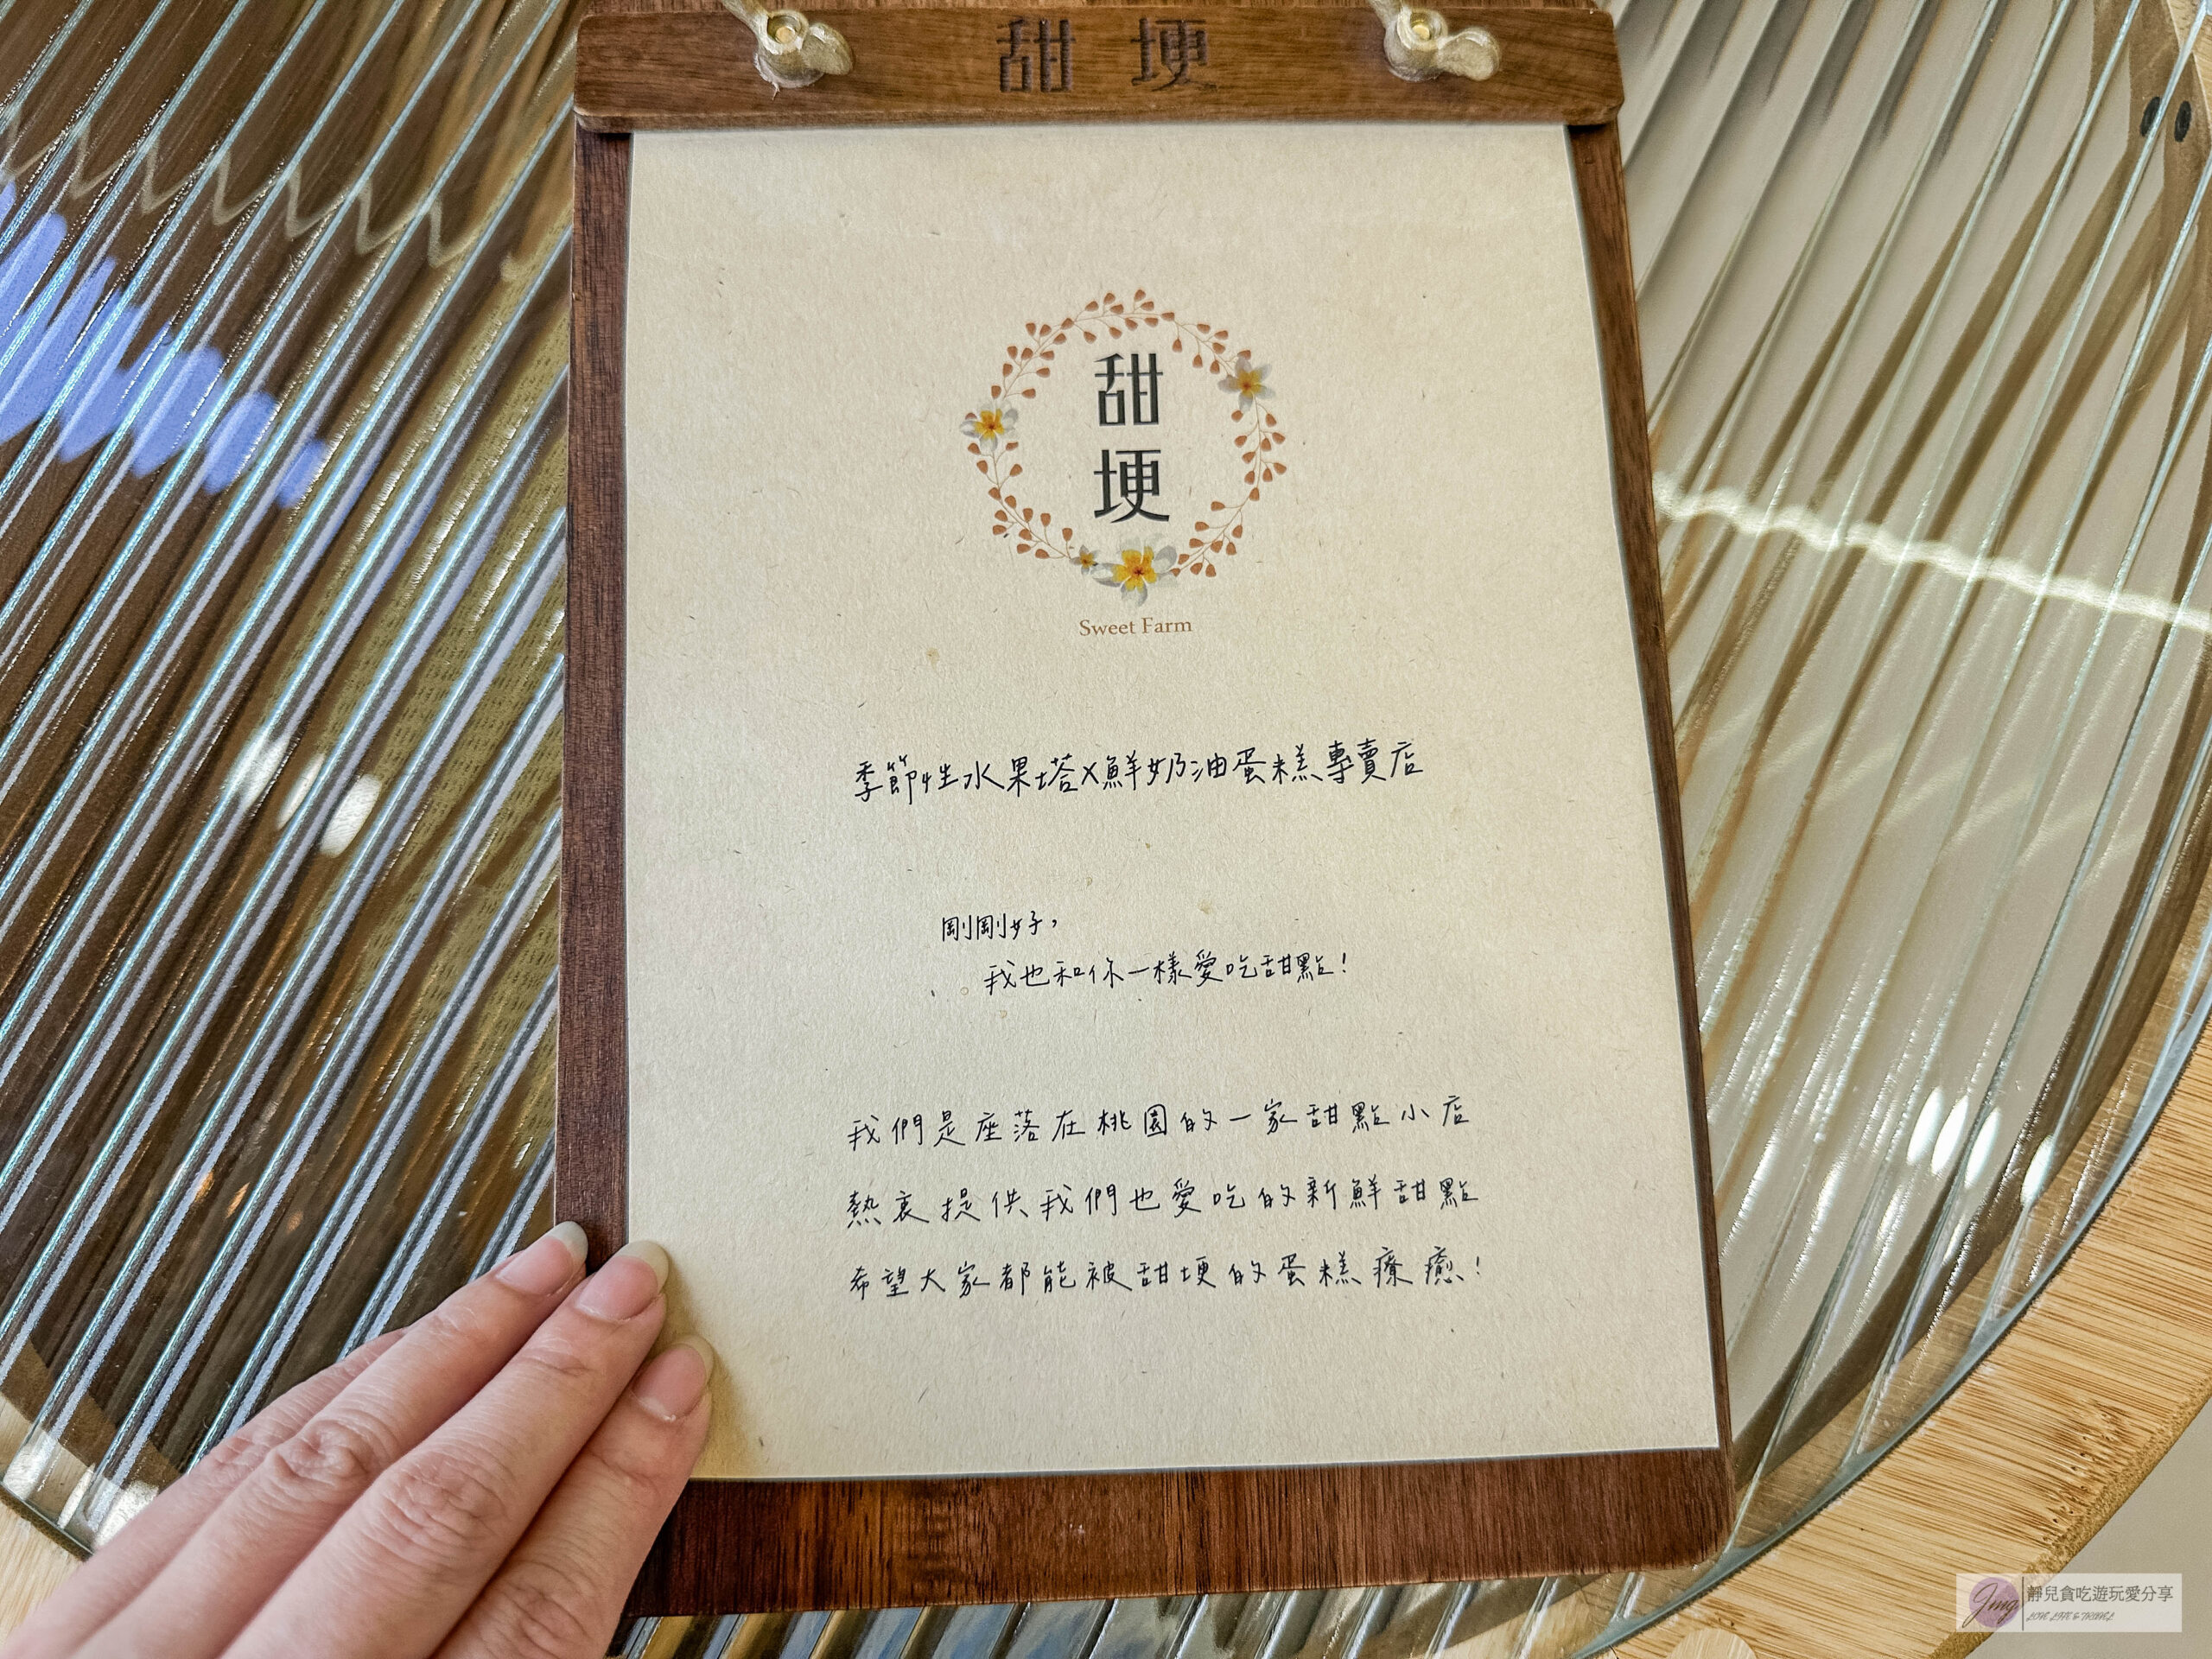 甜 埂
甜
埂
Sweet Farm
季節性水果塔x鮮奶油蛋糕專賣店
剛剛好，
我也和你一樣愛吃甜點！
我們是座落在桃園的一家甜點小店
熱衷提供我們也愛吃的新鮮甜點
希望大家都能被甜埂的蛋糕療癒！
Jing
靜兒貪吃遊玩愛分享
LOVE, LIFE & TRAVEL